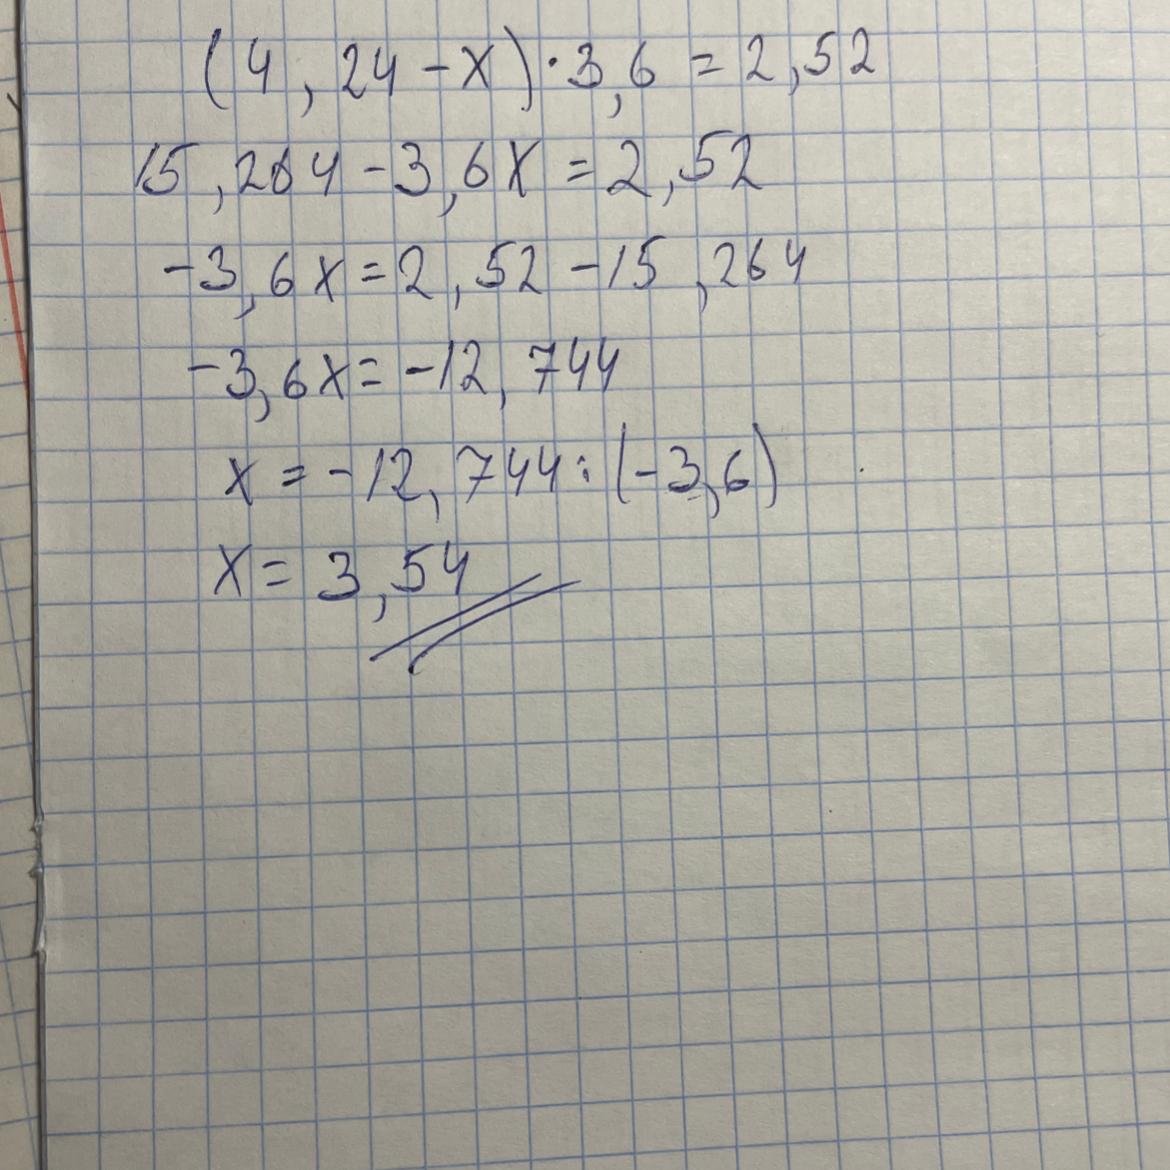 (4,24-x)·3,6=2,52
15,264-3,6x=2,52
-3,6x=2,52-15,264
-3,6x=-12,744
x=-12,744:(-3,6)
x=3,54